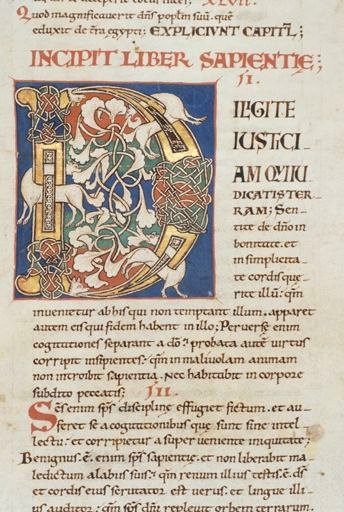 XLVII.
Quod magnificauerit dn̄s popl̄m suū. quē
eduxit de t̄ra egypti; EXPLICIVNT CAPITL̄;
INCIPIT LIBER SAPIENTIĘ;
II.
D ILIGITE
IUSTICI
AM QUI IU
DICATIS TER
RAM; Sen
tite de dn̄o in
bonitate. et
in simplicita
te cordis que
rite illū: qm̄
inuenietur ab his qui non temptant illum. apparet
autem eis qui fidem habent in illo; Peruerse enim
cogitationes separant a dō: probata autē uirtus
corripit insipientes: qm̄ in maliuolam animam
non introibit sapientia. nec habitabit in corpore
subdito peccatis; III.
Sc̄s enim sp̄s disciplinę effugiet fictum. et au
feret se a cogitationibus que sunt sine intel
lectu: et corripietur a super ueniente iniquitate;
Benignus. ē. enim sp̄s sapientię. et non liberabit ma
ledictum a labiis suis: qm̄ renum illius testis. ē. ds̄
et cordis eius scrutator est uerus. et linguę illi
us auditor: qm̄ sp̄s dn̄i repleuit orbem terrarum.